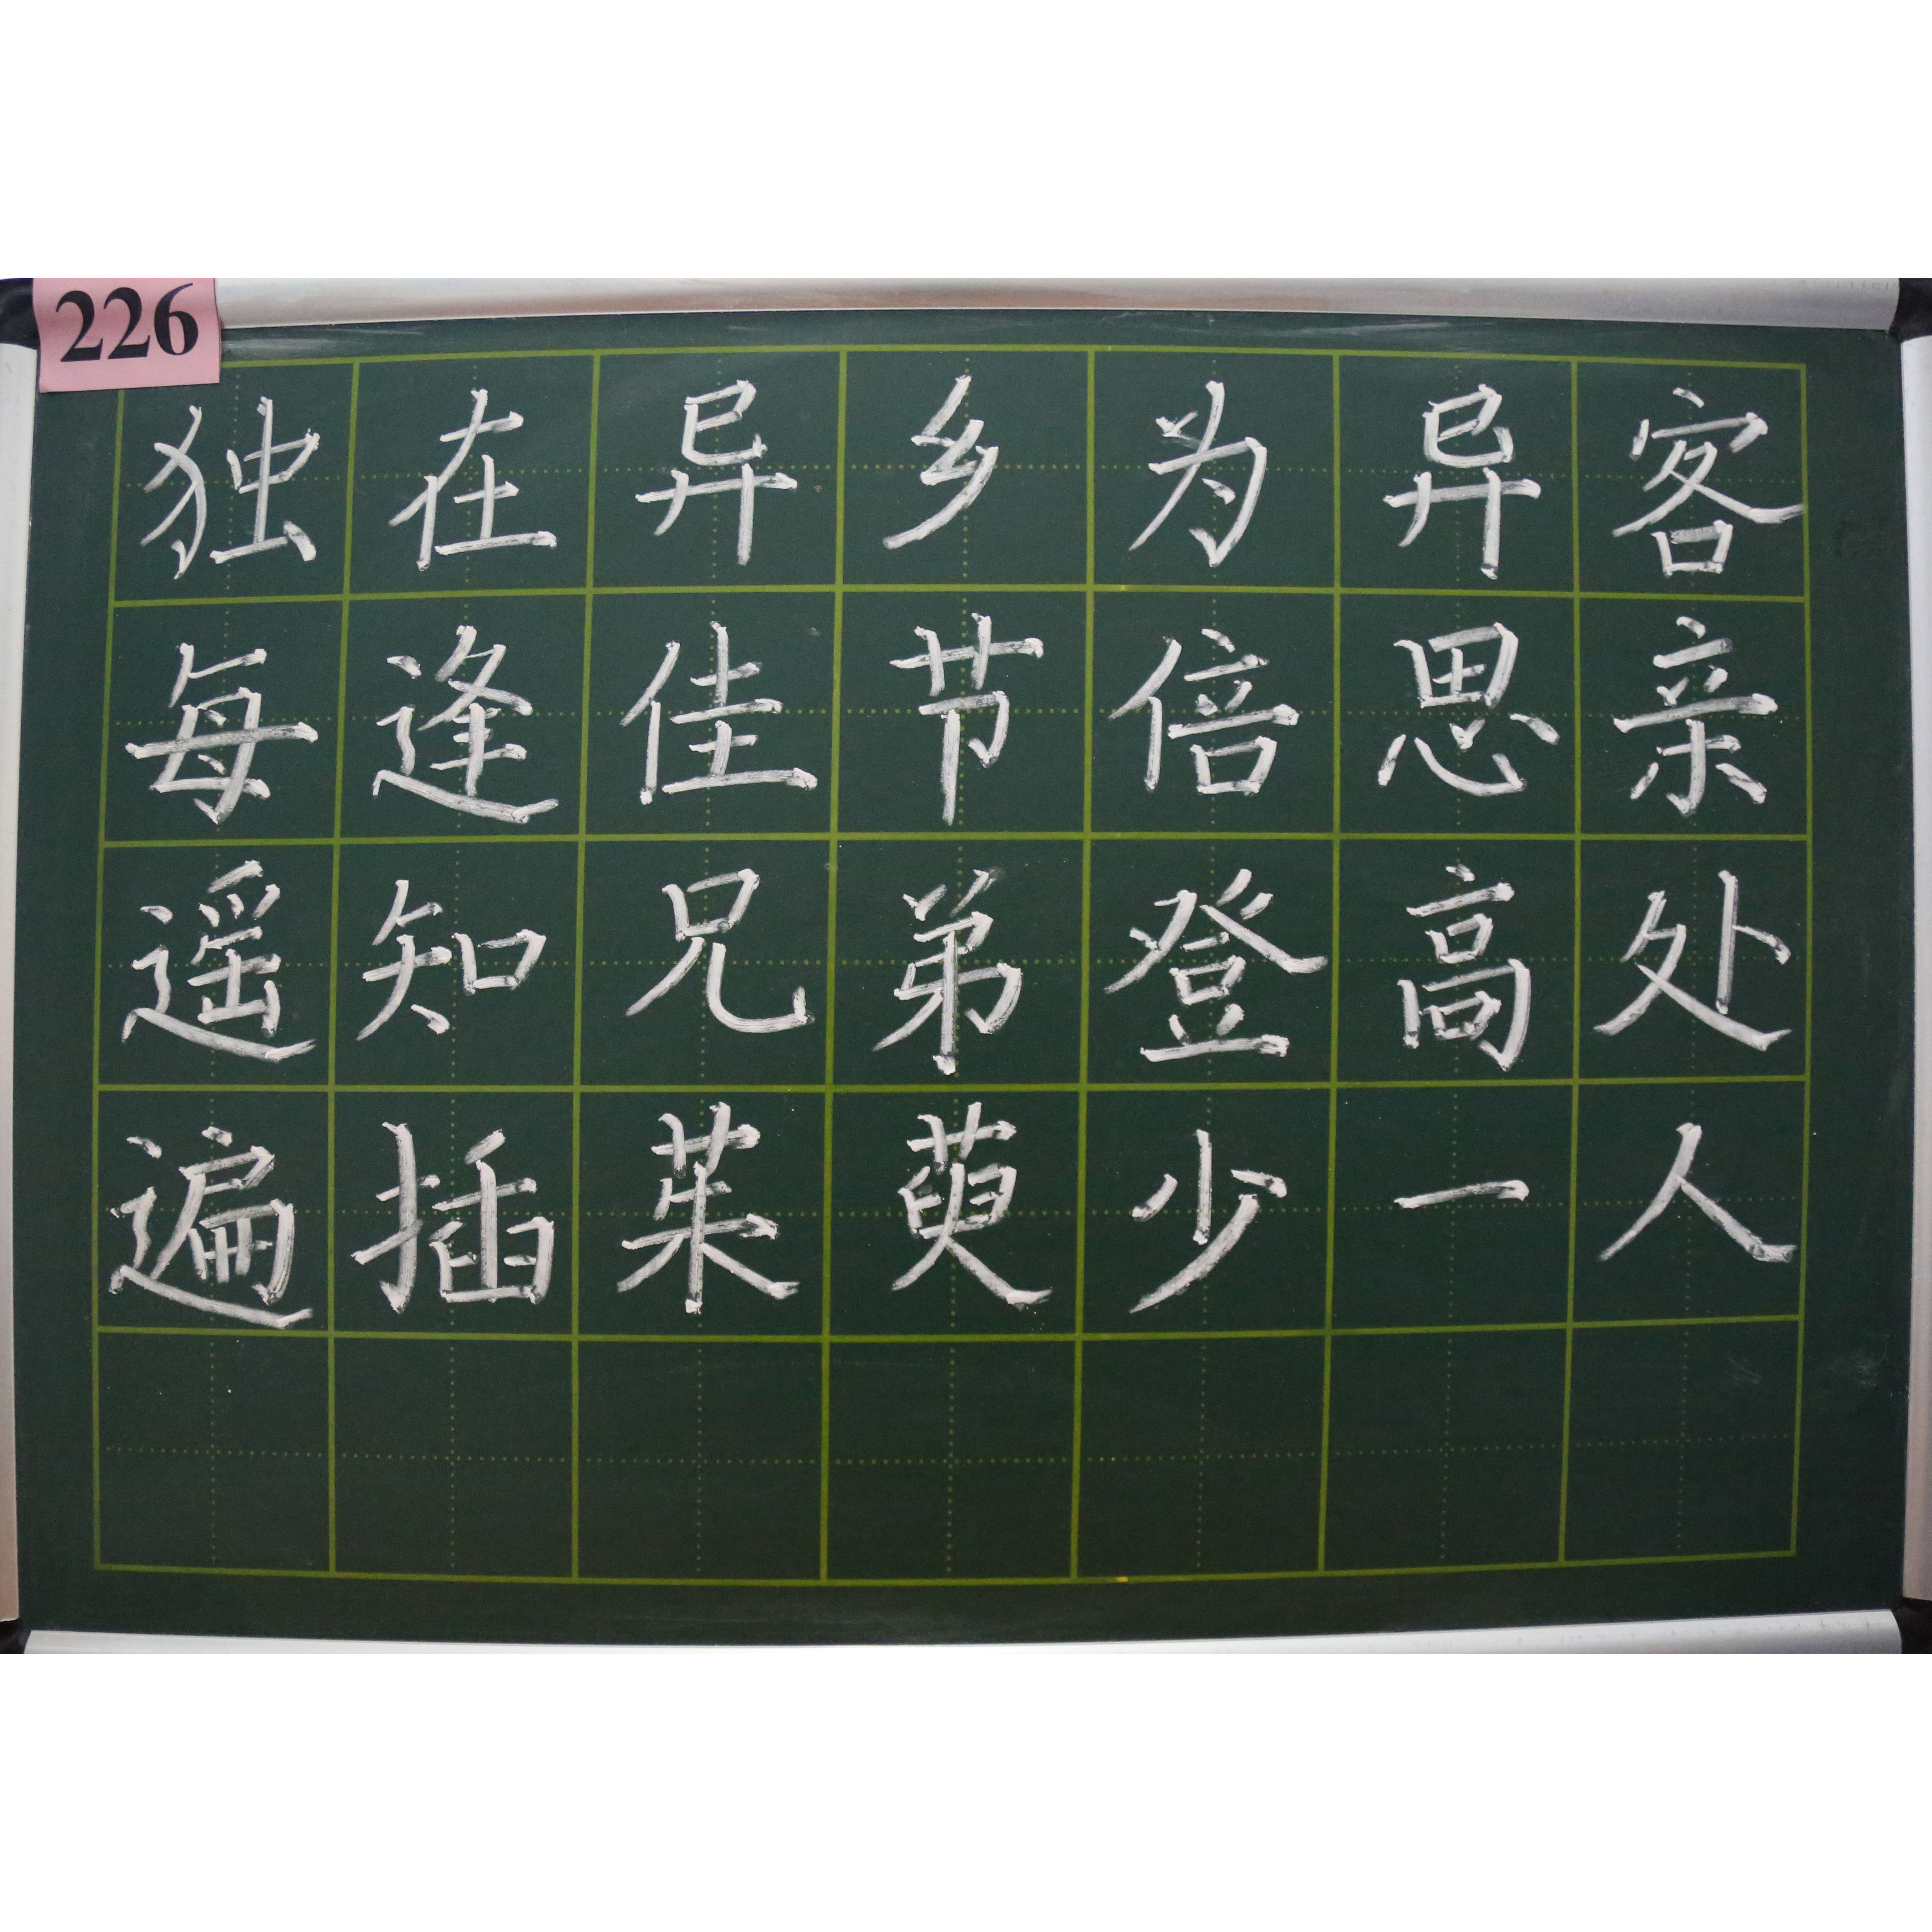 226
独在异乡为异客
每逢佳节倍思亲
遥知兄弟登高处
遍插茱萸少一人